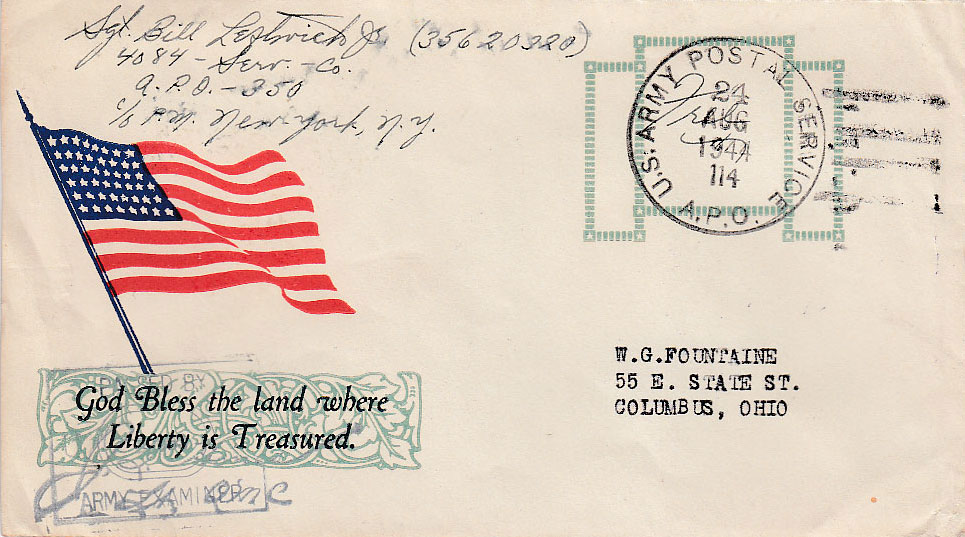 Sgt. Bill Leftwich Jr (35620320)
4084 - Serv. - Co.
A.P.O. - 350
c/o P.M. New York, N.Y.
U.S. ARMY POSTAL SERVICE
24
AUG
1944
114
A.P.O.
Free
W.G.FOUNTAINE
55 E. STATE ST.
COLUMBUS, OHIO
God Bless the land where
Liberty is Treasured.
PASSED BY
ARMY EXAMINER